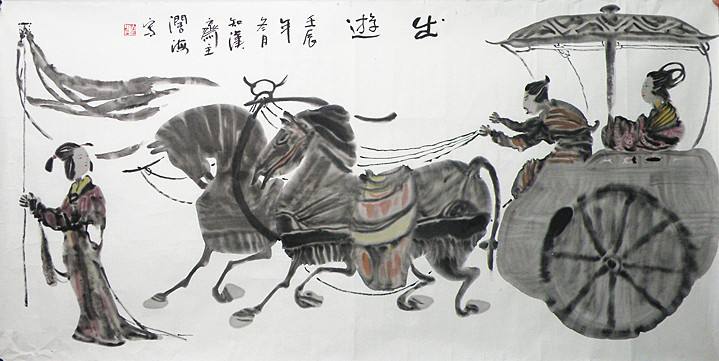 出遊
壬辰
年
冬月
知漢
齋主
海
寫